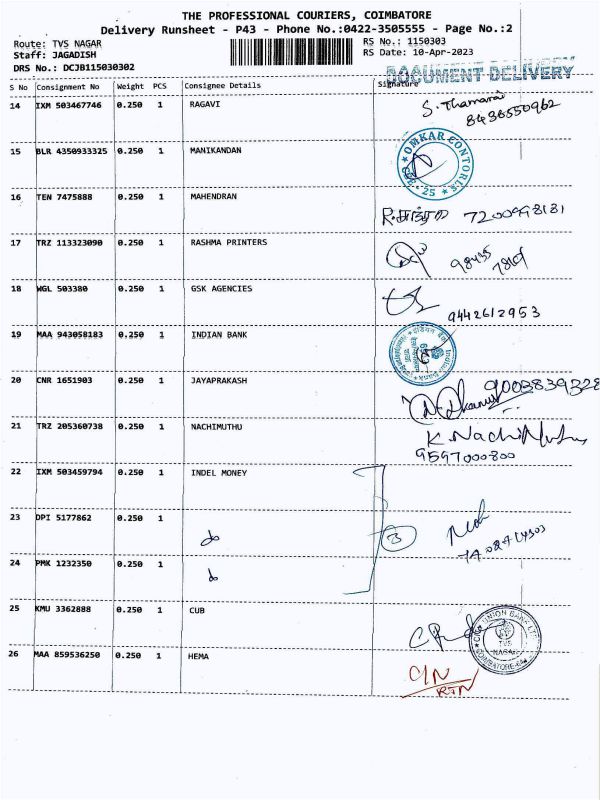 THE PROFESSIONAL COURIERS, COIMBATORE
Delivery Runsheet - P43 - Phone No.:0422-3505555 - Page No.:2
Route: TVS NAGAR
Staff: JAGADISH
DRS No.: DCJB115030302
RS No.: 1150303
RS Date: 10-Apr-2023
DOCUMENT DELIVERY
S No Consignment No Weight PCS Consignee Details Signature
14 IXM 503467746 0.250 1 RAGAVI
S. Thamarai
8438550962
15 BLR 4350933325 0.250 1 MANIKANDAN
OMKAR CONTORLS
25
16 TEN 7475888 0.250 1 MAHENDRAN
7200998181
17 TRZ 113323090 0.250 1 RASHMA PRINTERS
98435
18 WGL 503380 0.250 1 GSK AGENCIES
9442612953
19 MAA 943058183 0.250 1 INDIAN BANK
20 CNR 1651903 0.250 1 JAYAPRAKASH
9003839328
21 TRZ 205360738 0.250 1 NACHIMUTHU
K. NachiMuthu
9597000800
22 IXM 503459794 0.250 1 INDEL MONEY
23 DPI 5177862 0.250 1 do
3
24 PMK 1232350 0.250 1 do
25 KMU 3362888 0.250 1 CUB
CITY UNION BANK LTD
TVS
NAGAR
COIMBATORE
26 MAA 859536250 0.250 1 HEMA
RTN